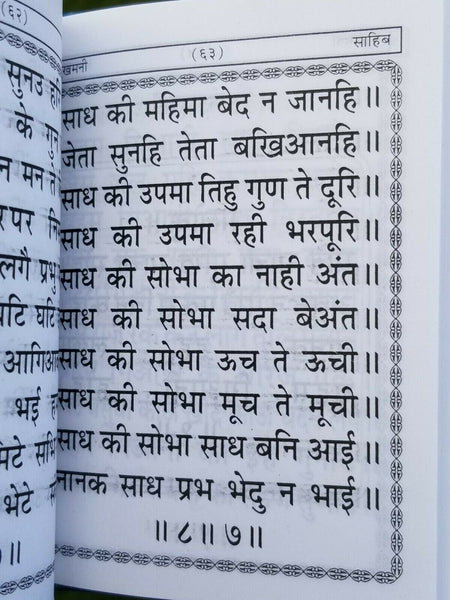 (६२)
सुनउ
के
न मन
लगै प्रभु
घटि
भई
भेटे
(६३) साहिब
साध की महिमा बेद न जानहि॥
जेता सुनहि तेता बखिआनहि॥
साध की उपमा तिहु गुण ते दूरि॥
साध की उपमा रही भरपूरि॥
साध की सोभा का नाही अंत॥
साध की सोभा सदा बेअंत॥
साध की सोभा ऊच ते ऊची॥
साध की सोभा मूच ते मूची॥
साध की सोभा साध बनि आई॥
नानक साध प्रभ भेदु न भाई॥
॥८॥७॥